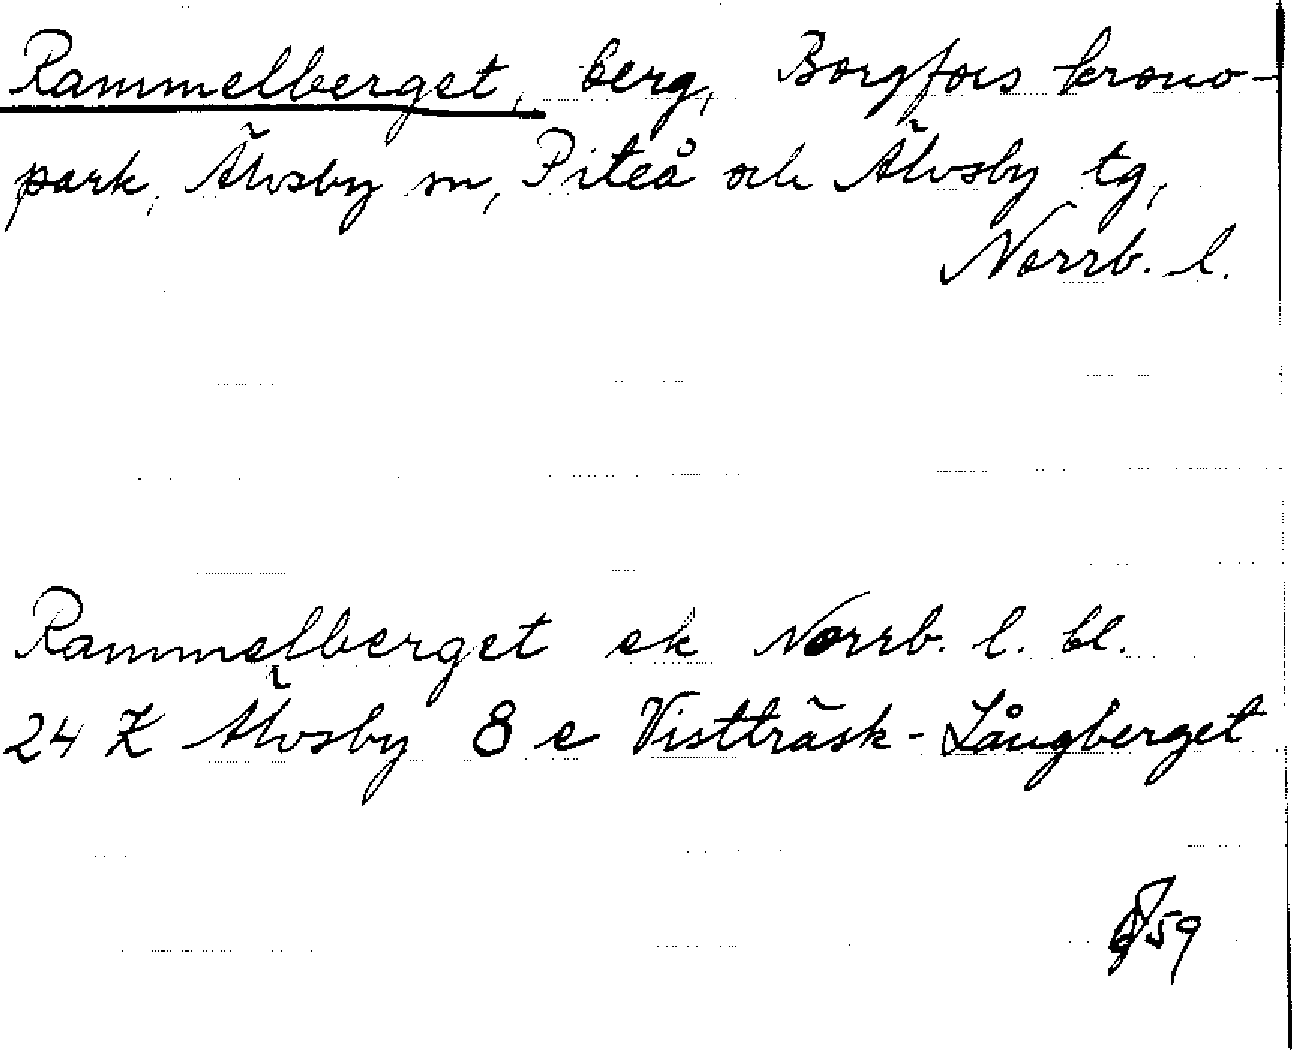 Rammelberget, berg, Borgfors krono-
park, Älvsby sn, Piteå och Älvsby tg,
Norrb. l.
Rammelberget ek Norrb. l. bl.
24 K Älvsby 8 e Vistträsk-Långberget
59